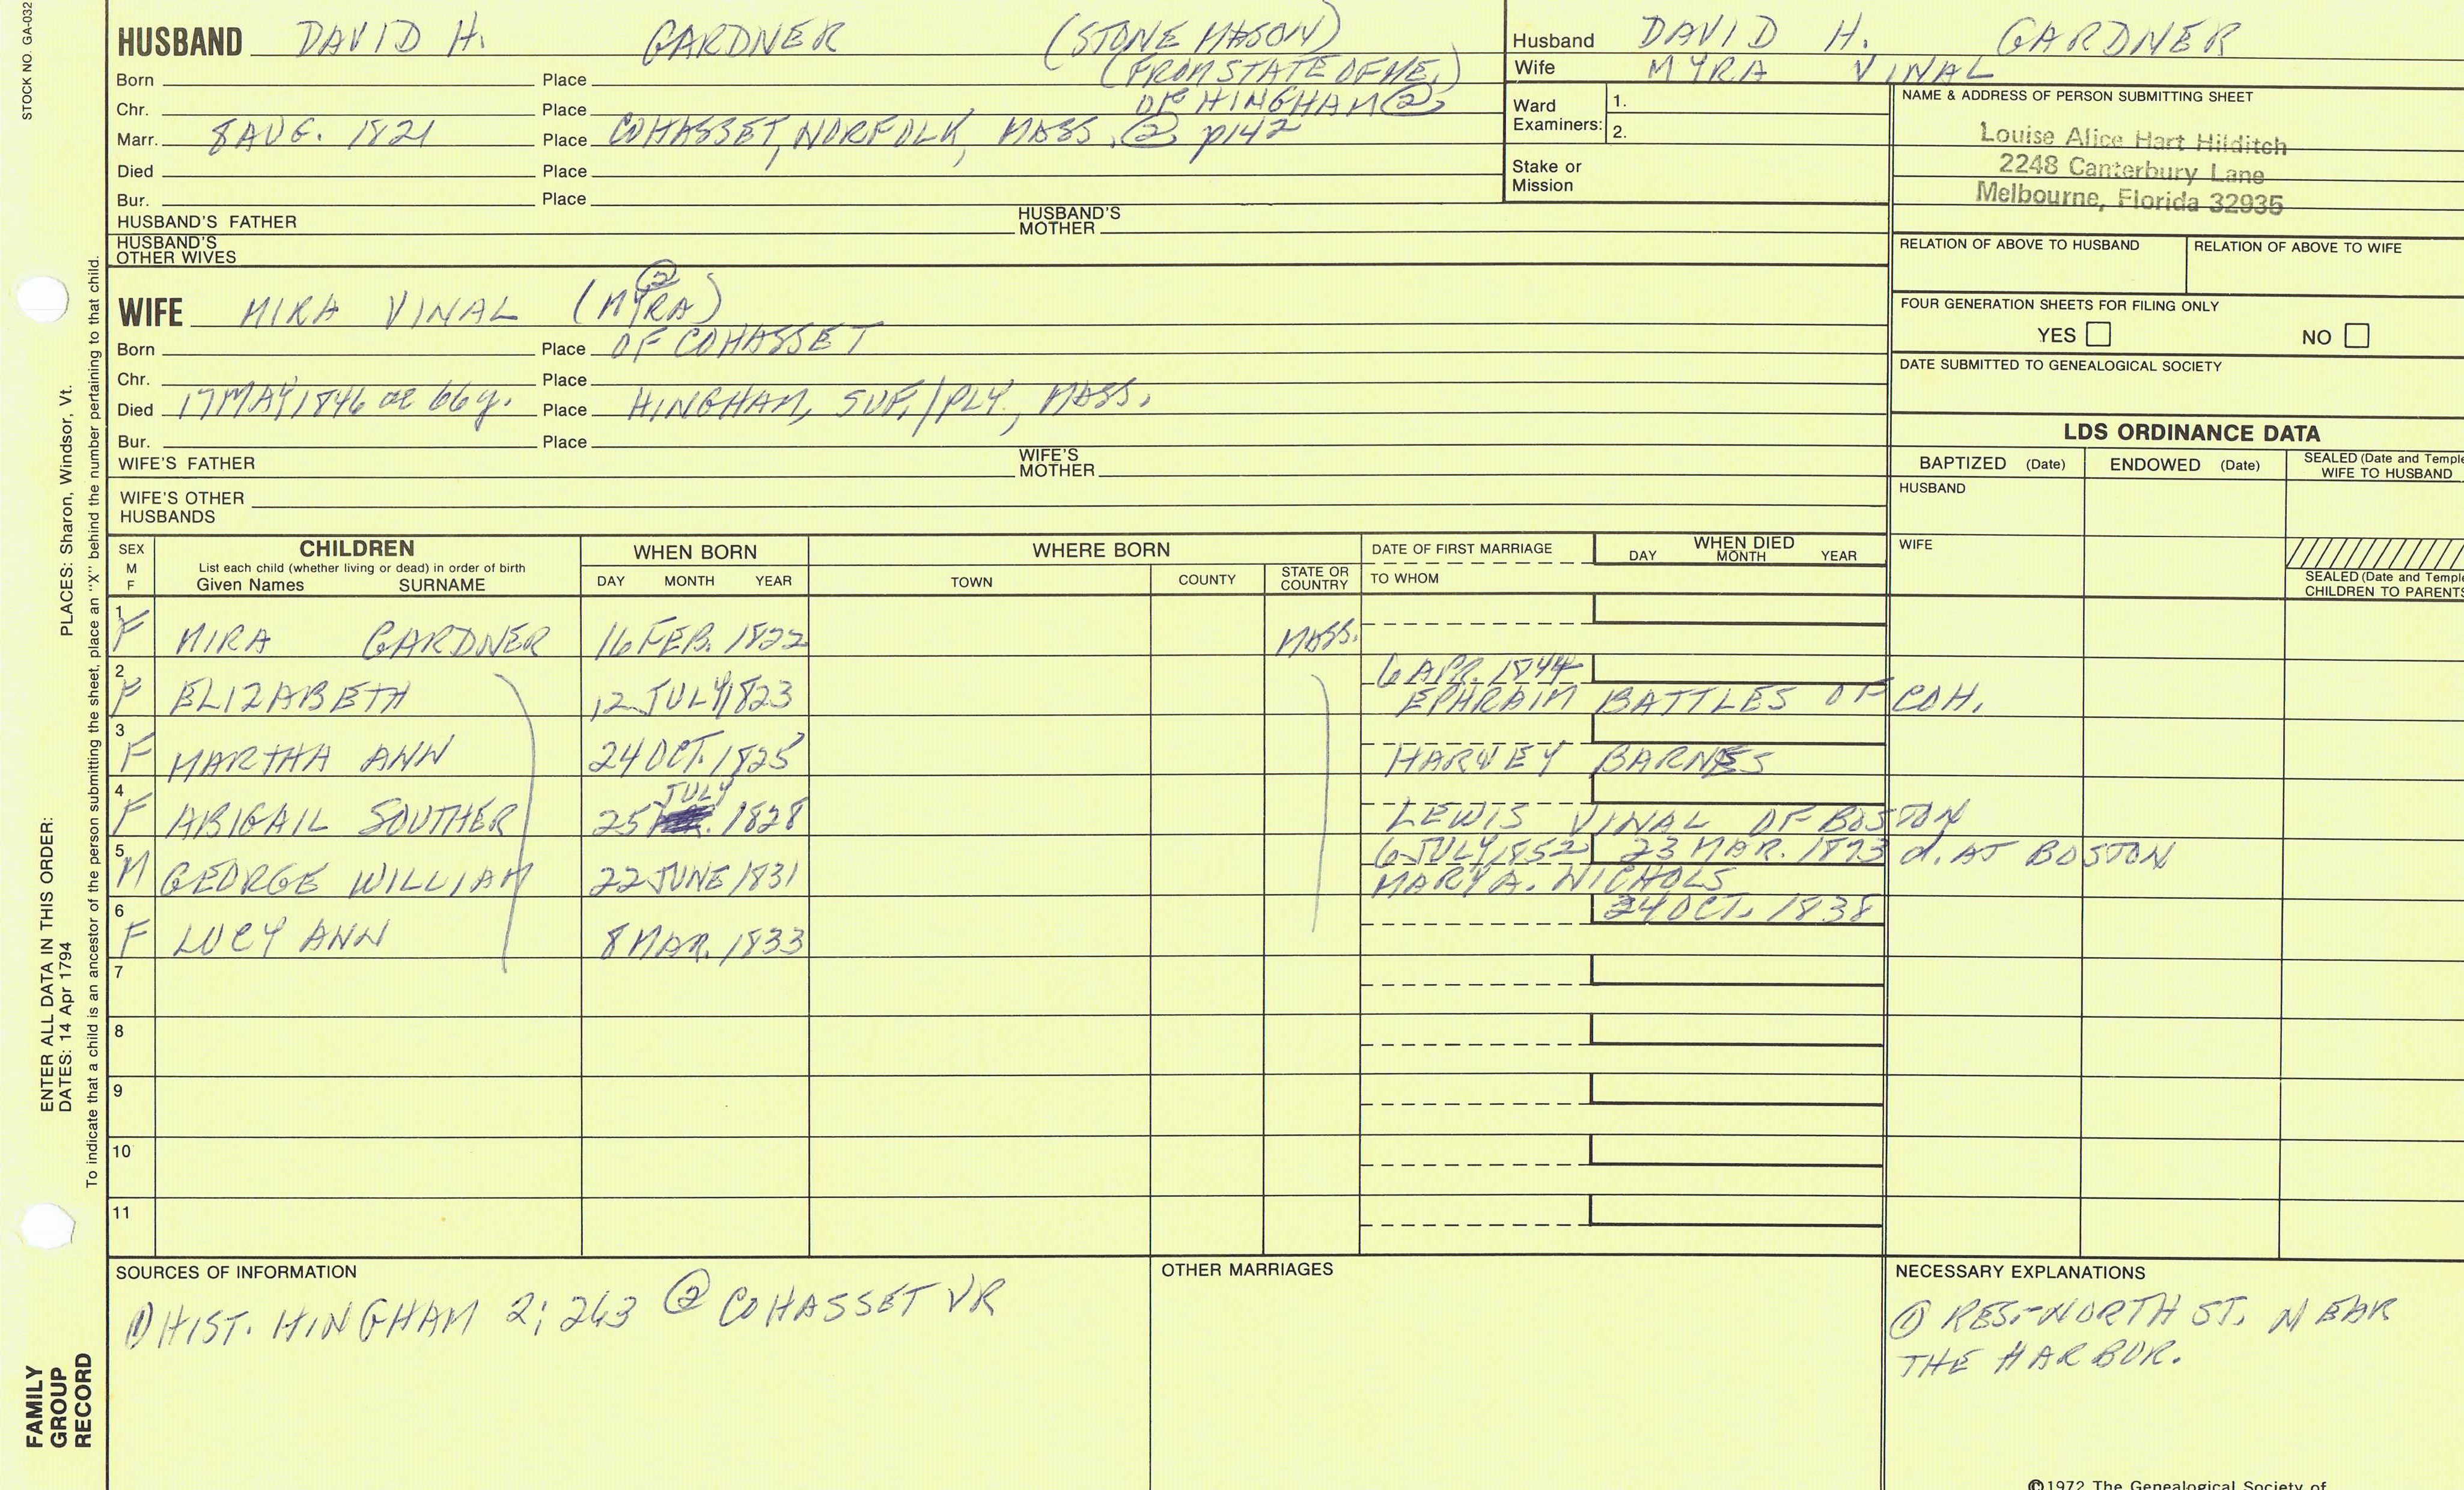 STOCK NO. GA-032
HUSBAND DAVID H. GARDNER (STONE MASON)
(FROM STATE OF ME.)
Born Place
OF HINGHAM ②
Chr. Place
Marr. 8 AUG. 1821 Place COHASSET, NORFOLK, MASS. ② p142
Died Place
Bur. Place
HUSBAND'S FATHER HUSBAND'S MOTHER
HUSBAND'S OTHER WIVES
Husband DAVID H. GARDNER
Wife MYRA VINAL
Ward Examiners: 1.
2.
Stake or Mission
NAME & ADDRESS OF PERSON SUBMITTING SHEET
Louise Alice Hart Hilditch
2248 Canterbury Lane
Melbourne, Florida 32935
RELATION OF ABOVE TO HUSBAND RELATION OF ABOVE TO WIFE
FOUR GENERATION SHEETS FOR FILING ONLY
YES NO
DATE SUBMITTED TO GENEALOGICAL SOCIETY
②
WIFE MIRA VINAL (MYRA)
Born Place OF COHASSET
Chr. Place
Died 17 MAY 1846 ae 66y. Place HINGHAM, SUF./PLY., MASS.
Bur. Place
WIFE'S FATHER WIFE'S MOTHER
WIFE'S OTHER HUSBANDS
LDS ORDINANCE DATA
BAPTIZED (Date) ENDOWED (Date) SEALED (Date and Temple
WIFE TO HUSBAND
HUSBAND
WIFE
SEALED (Date and Temple
CHILDREN TO PARENTS
SEX M F
CHILDREN
List each child (whether living or dead) in order of birth
Given Names SURNAME
WHEN BORN
DAY MONTH YEAR
WHERE BORN
TOWN COUNTY STATE OR COUNTRY
DATE OF FIRST MARRIAGE
TO WHOM
WHEN DIED
DAY MONTH YEAR
1 F MIRA GARDNER 16 FEB. 1822 MASS.
6 APR. 1844
2 F ELIZABETH 12 JULY 1823 EPHRAIM BATTLES OF COH.
3 F MARTHA ANN 24 OCT. 1825 HARVEY BARNES
JULY
4 F ABIGAIL SOUTHER 25 . 1828 LEWIS VINAL OF BOSTON
6 JULY 1852 23 MAR. 1873 d. AT BOSTON
5 M GEORGE WILLIAM 22 JUNE 1831 MARY A. NICHOLS
24 OCT. 1838
6 F LUCY ANN 8 MAR. 1833
7
8
9
10
11
SOURCES OF INFORMATION
① HIST. HINGHAM 2; 263 ② COHASSET VR
OTHER MARRIAGES
NECESSARY EXPLANATIONS
① RES.-NORTH ST. NEAR
THE HARBOR.
©1972 The Genealogical Society of
ENTER ALL DATA IN THIS ORDER:
DATES: 14 Apr 1794 PLACES: Sharon, Windsor, Vt.
To indicate that a child is an ancestor of the person submitting the sheet, place an "X" behind the number pertaining to that child.
FAMILY
GROUP
RECORD